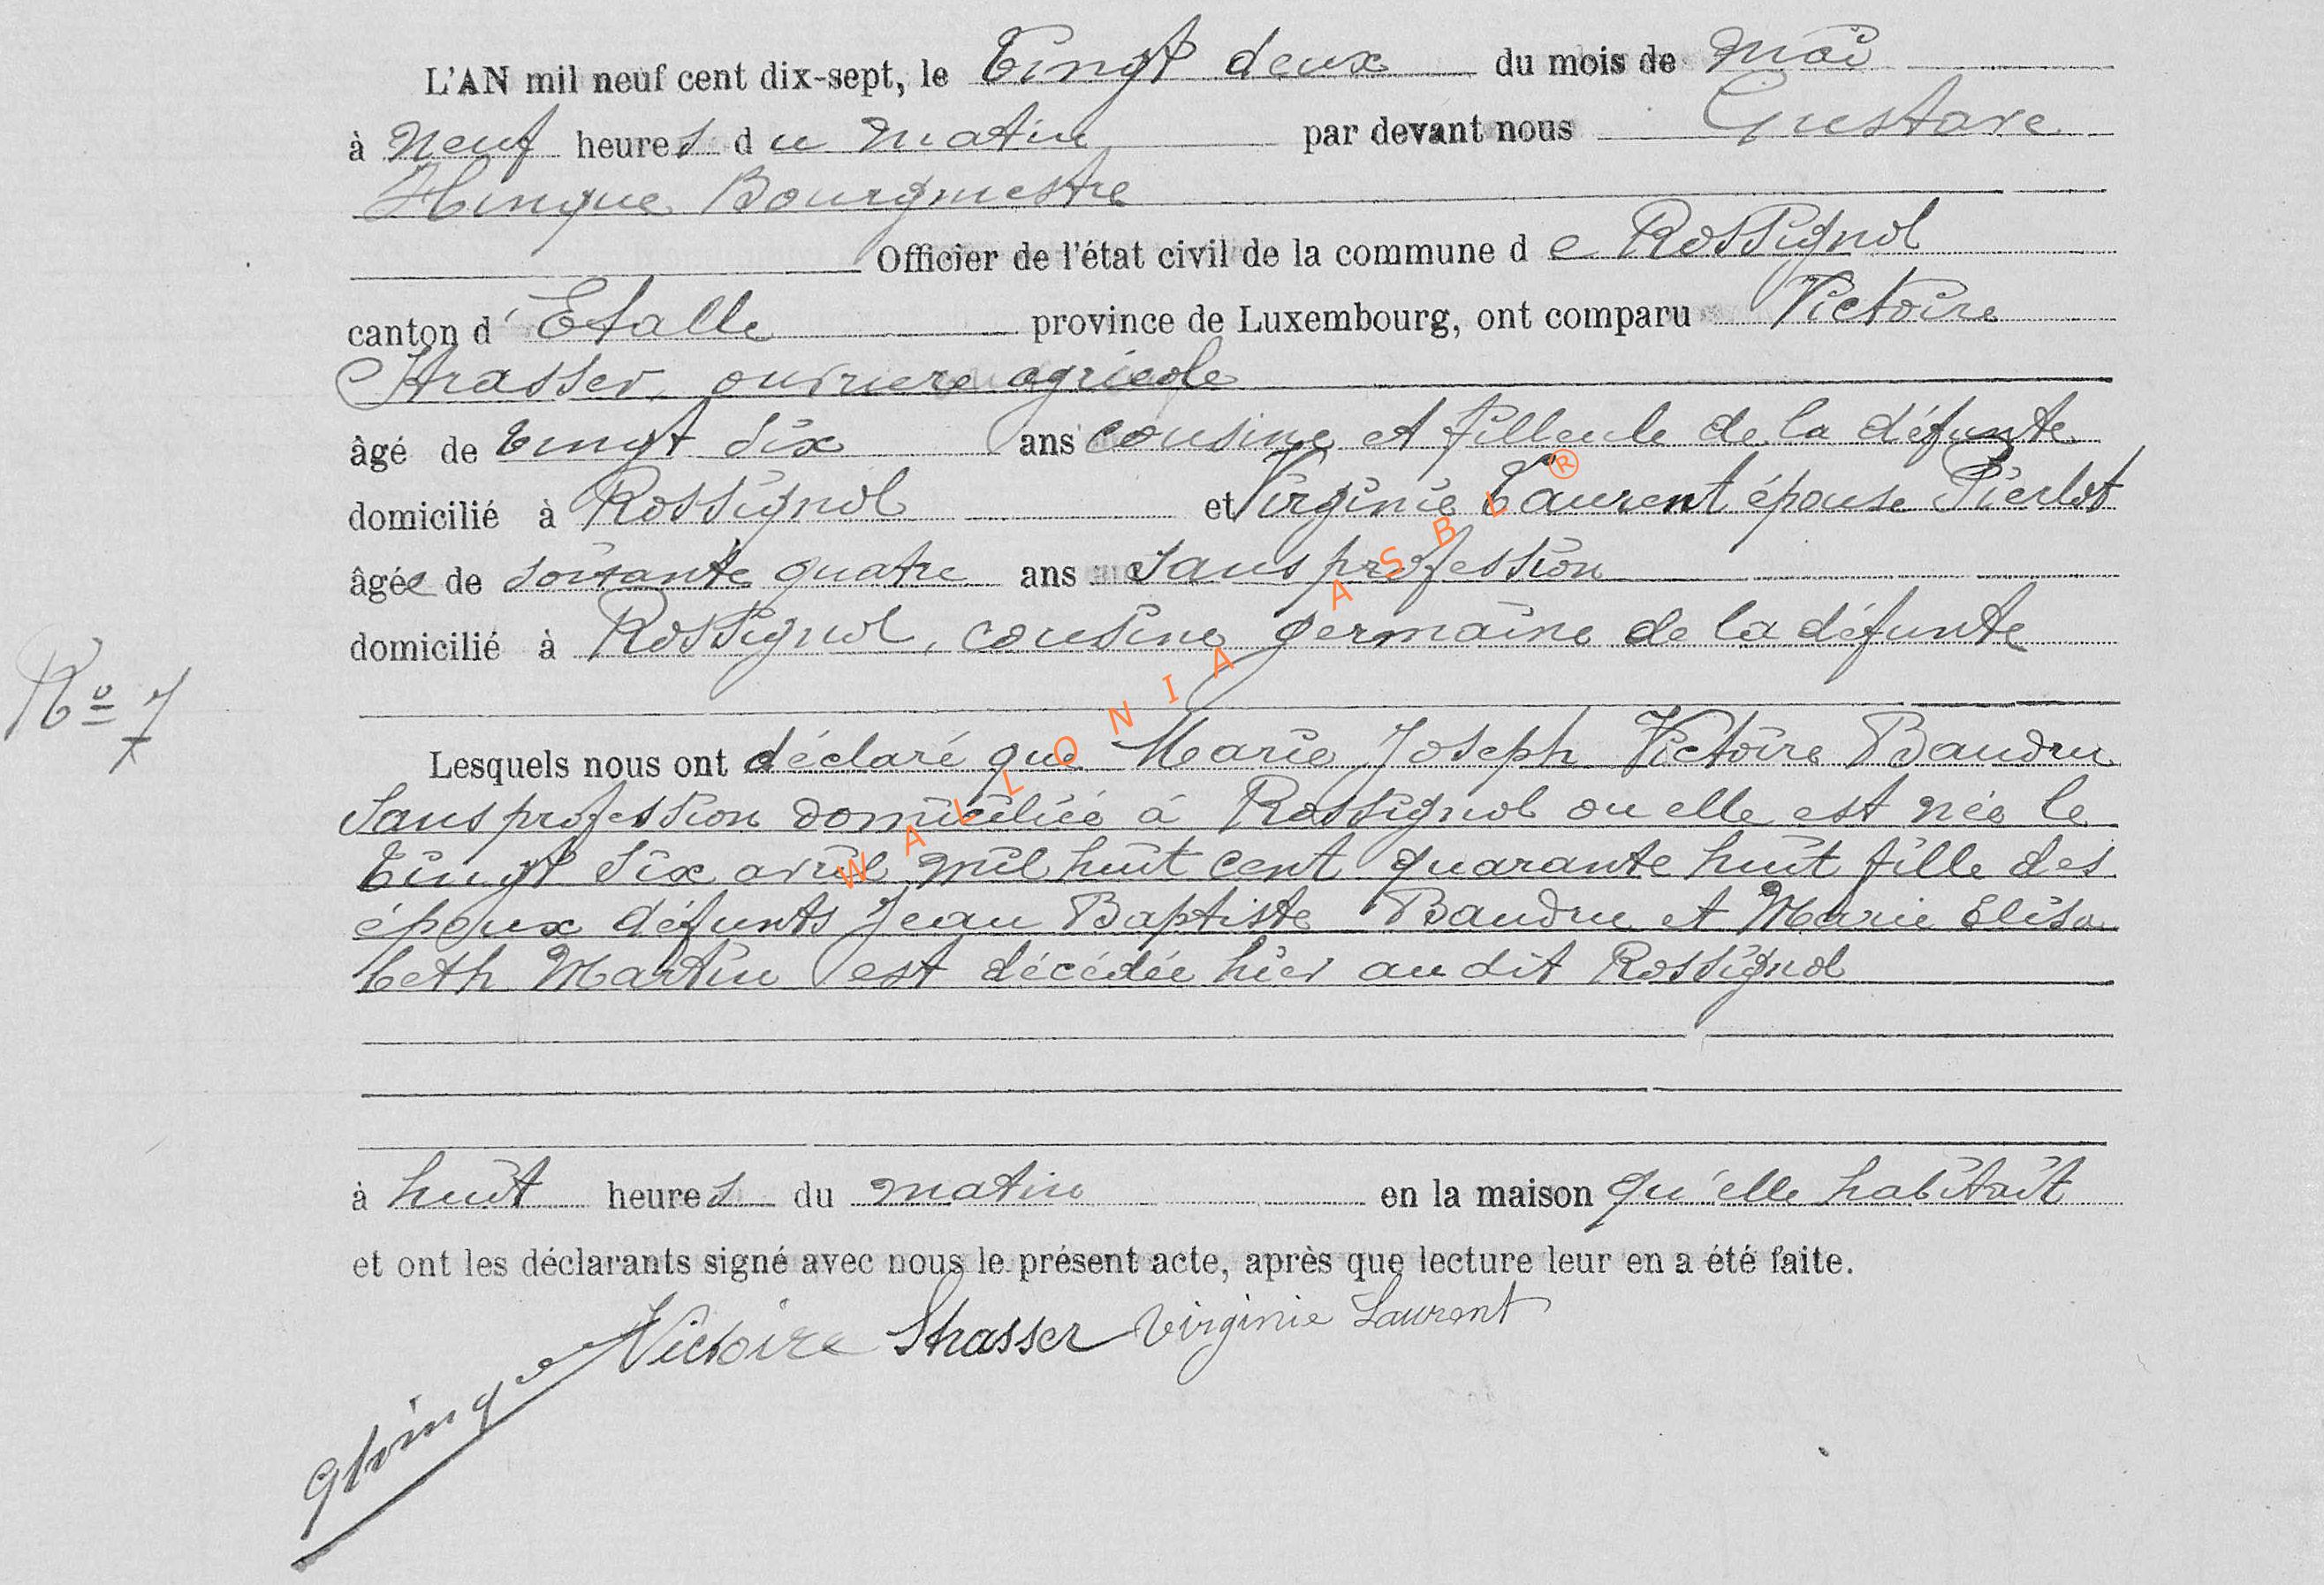 L'AN mil neuf cent dix-sept, le Vingt deux du mois de Mai
à Neuf heures du matin par devant nous Gustave
Hinque Bourgmestre
Officier de l'état civil de la commune de Rossignol
canton d'Etalle province de Luxembourg, ont comparu Victoire
Strasser, ouvriere agricole
âgé de vingt six ans cousine et filleule de la défunte
domicilié à Rossignol et Virginie Laurent épouse Pierlot
âgée de soixante quatre ans sans profession
domicilié à Rossignol, cousine germaine de la défunte
No 7
Lesquels nous ont déclaré que Marie Joseph Victoire Baudru
sans profession domiciliée à Rossignol ou elle est née le
vingt six avril mil huit cent quarante huit fille des
époux défunts Jean Baptiste Baudru et Marie Elisa
beth Martin est décédée hier au dit Rossignol
à huit heures du matin en la maison qu'elle habitait
et ont les déclarants signé avec nous le présent acte, après que lecture leur en a été faite.
Victoire Strasser Virginie Laurent
GHinque
WALLONIA ASBL ®